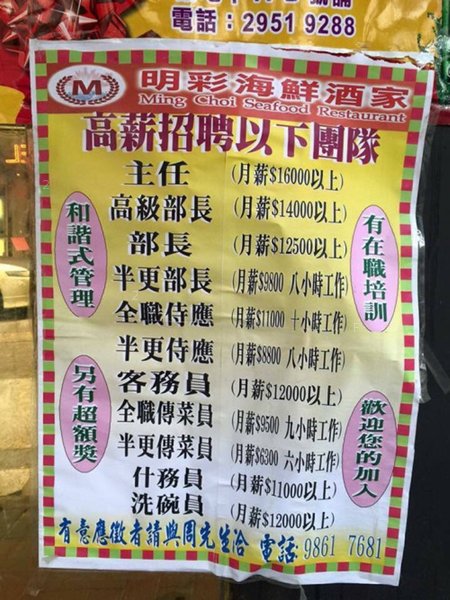 電話：2951 9288
M
明彩海鮮酒家
Ming Choi Seafood Restaurant
高薪招聘以下團隊
主任 (月薪$16000以上)
高級部長 (月薪$14000以上)
部長 (月薪$12500以上)
半更部長 (月薪$9800 八小時工作)
全職侍應 (月薪$11000 十小時工作)
半更侍應 (月薪$8800 八小時工作)
客務員 (月薪$12000以上)
全職傳菜員 (月薪$9500 九小時工作)
半更傳菜員 (月薪$6300 六小時工作)
什務員 (月薪$11000以上)
洗碗員 (月薪$12000以上)
和諧式管理
另有超額獎
有在職培訓
歡迎您的加入
有意應徵者請與周先生洽 電話 9861 7681